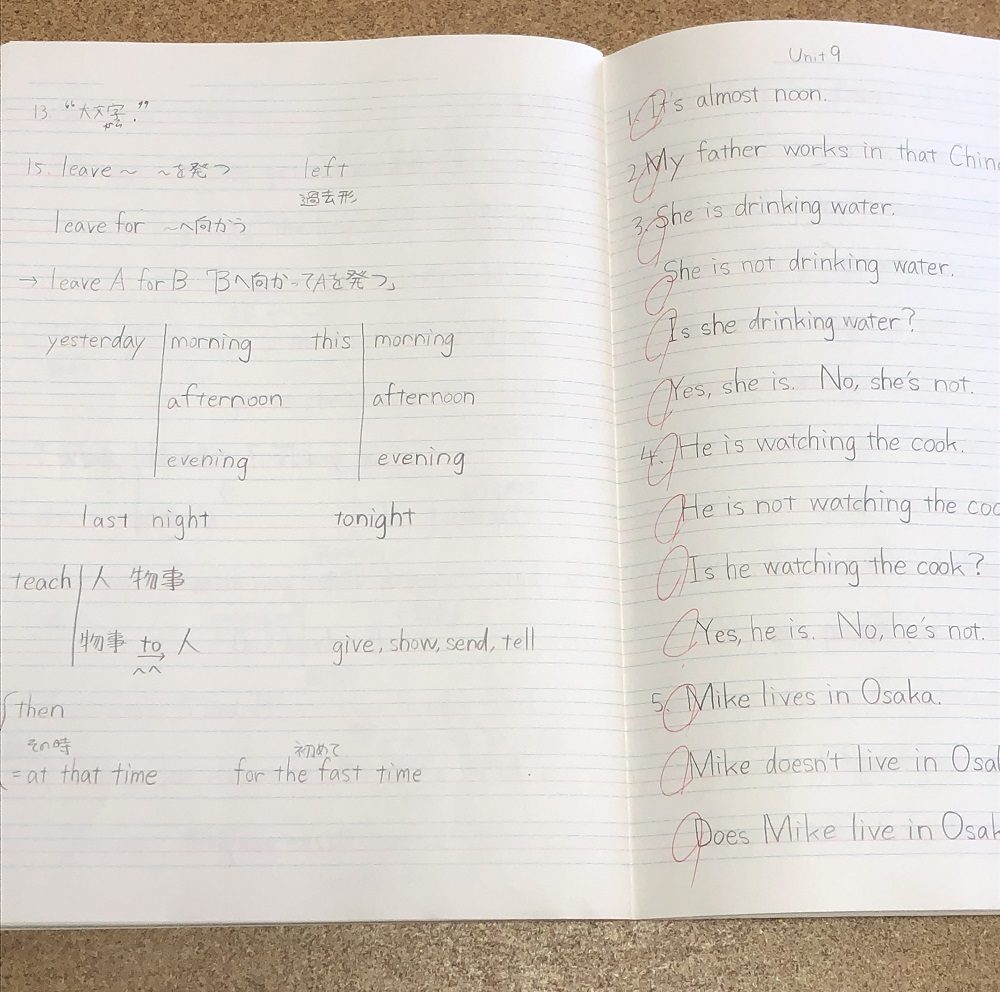 13. “大文字.”
15. leave～ ～を発つ left
過去形
leave for ～へ向かう
→ leave A for B 「Bへ向かってAを発つ」
yesterday morning this morning
afternoon afternoon
evening evening
last night tonight
teach 人 物事
物事 to 人 give, show, send, tell
へ
then
その時 初めて
= at that time for the fast time
Unit 9
1. It's almost noon.
2. My father works in that
3. She is drinking water.
She is not drinking water.
Is she drinking water?
Yes, she is. No, she's not.
4. He is watching the cook.
He is not watching the
Is he watching the cook?
Yes, he is. No, he's not.
5. Mike lives in Osaka.
Mike doesn't live in
Does Mike live in